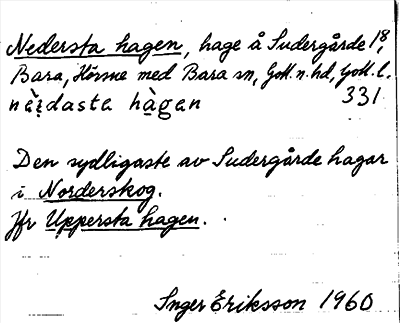 Nedersta hagen, hage å Sudergårde 18,
Bara, Hörsne med Bara sn, Gotl. n. hd, Gotl. l.
nè̤ɪdasta hà̤gan 331
Den sydligaste av Sudergårde hagar
i Norderskog.
Jfr Uppersta hagen.
Inger Eriksson 1960